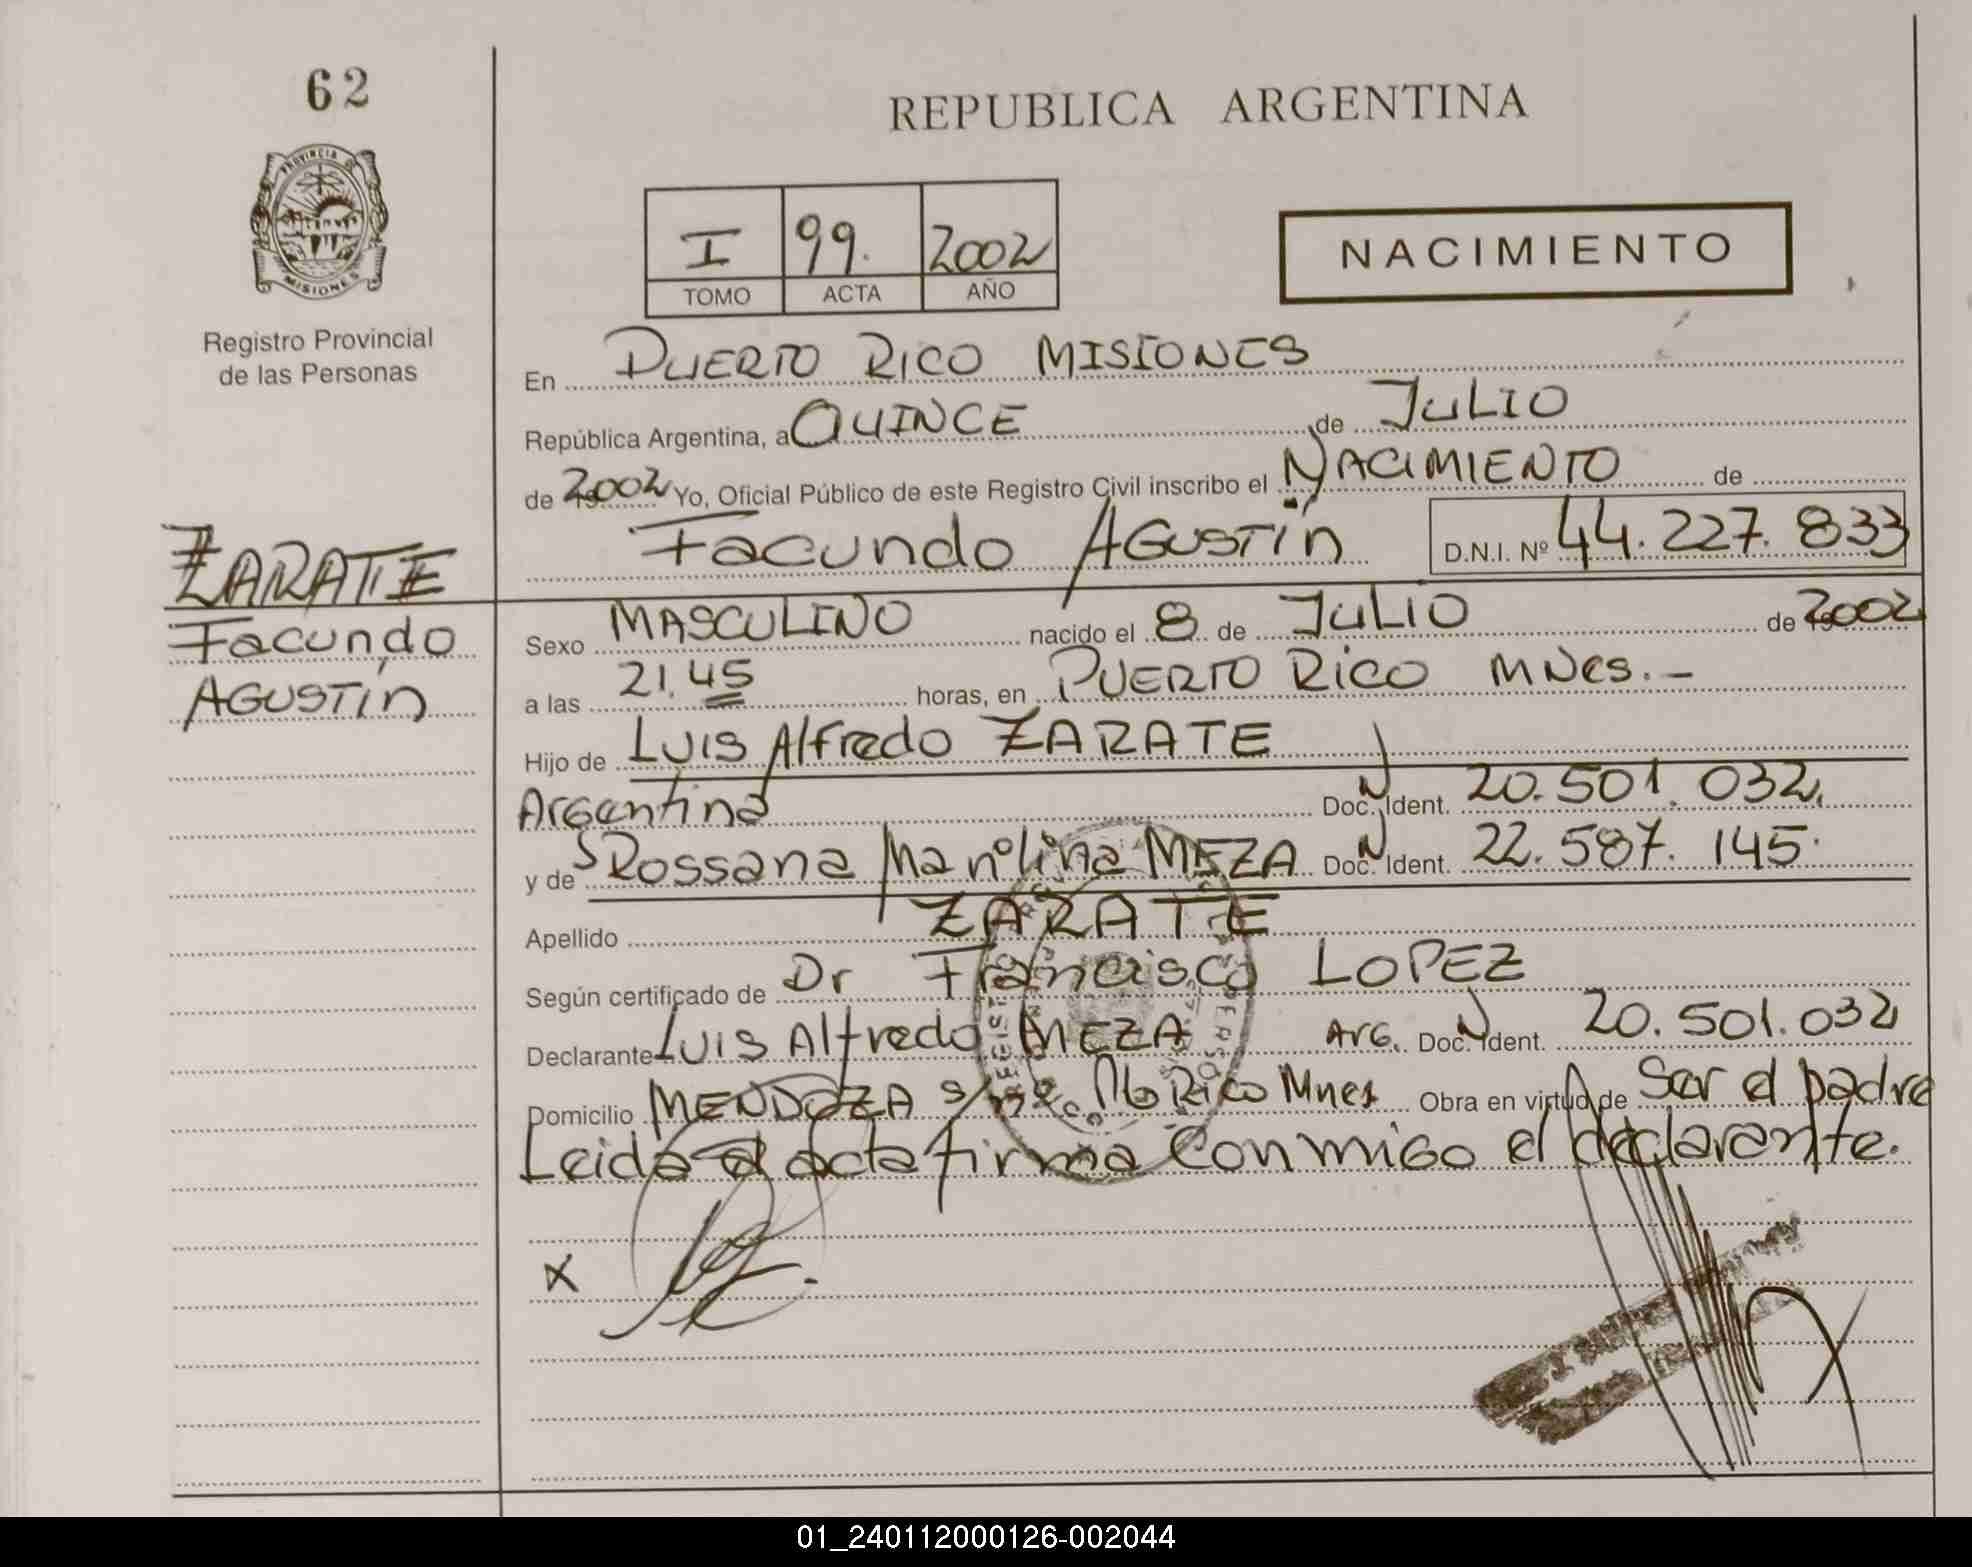 62
PROVINCIA DE
MISIONES
Registro Provincial
de las Personas
ZARATE
Facundo
AGUSTÍN
REPUBLICA ARGENTINA
I 99. 2002
TOMO ACTA AÑO
NACIMIENTO
En PUERTO RICO MISIONES
República Argentina, a QUINCE de JULIO
de 2002 Yo, Oficial Público de este Registro Civil inscribo el NACIMIENTO de
Facundo AGUSTÍN D.N.I. Nº 44.227.833
Sexo MASCULINO nacido el 8 de JULIO de 2002
a las 21.45 horas, en PUERTO RICO MNES.-
Hijo de LUIS Alfredo ZARATE
Argentina Doc. Ident. 20.501.032.
y de Rossana MEZA Doc. Ident. 22.587.145.
Apellido ZARATE
Según certificado de Dr Francisco LOPEZ
Declarante LUIS Alfredo MEZA ARG. Doc. Ident. 20.501.032
Domicilio MENDOZA Rico Mnes Obra en virtud de Ser el padre
Leida el acta firma conmigo el declarante.
X
01_240112000126-002044